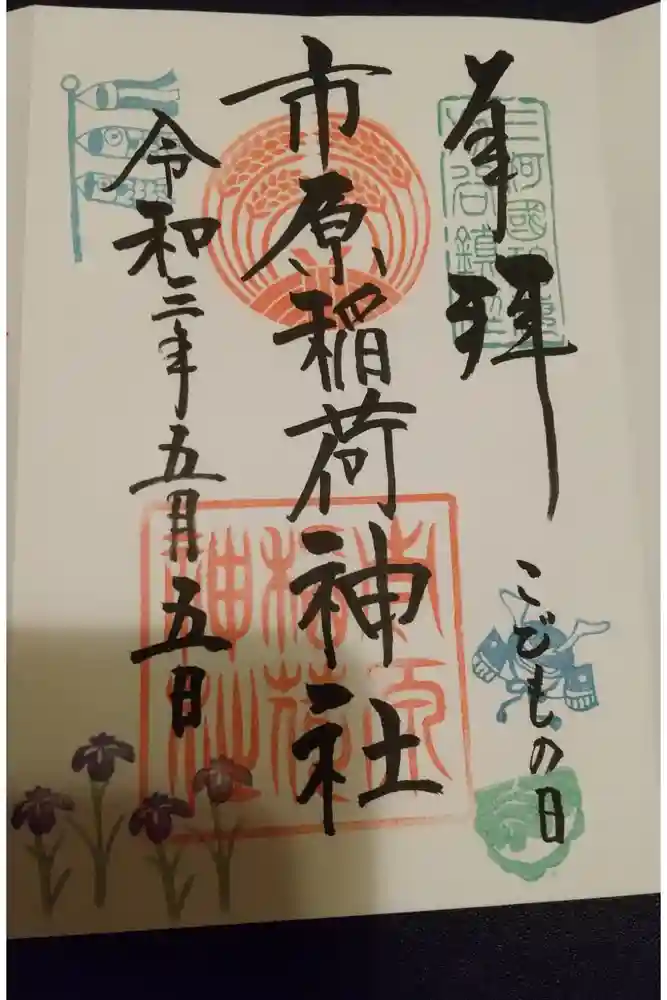 奉拝
こどもの日
市原稲荷神社
令和三年五月五日
市原稲荷神社